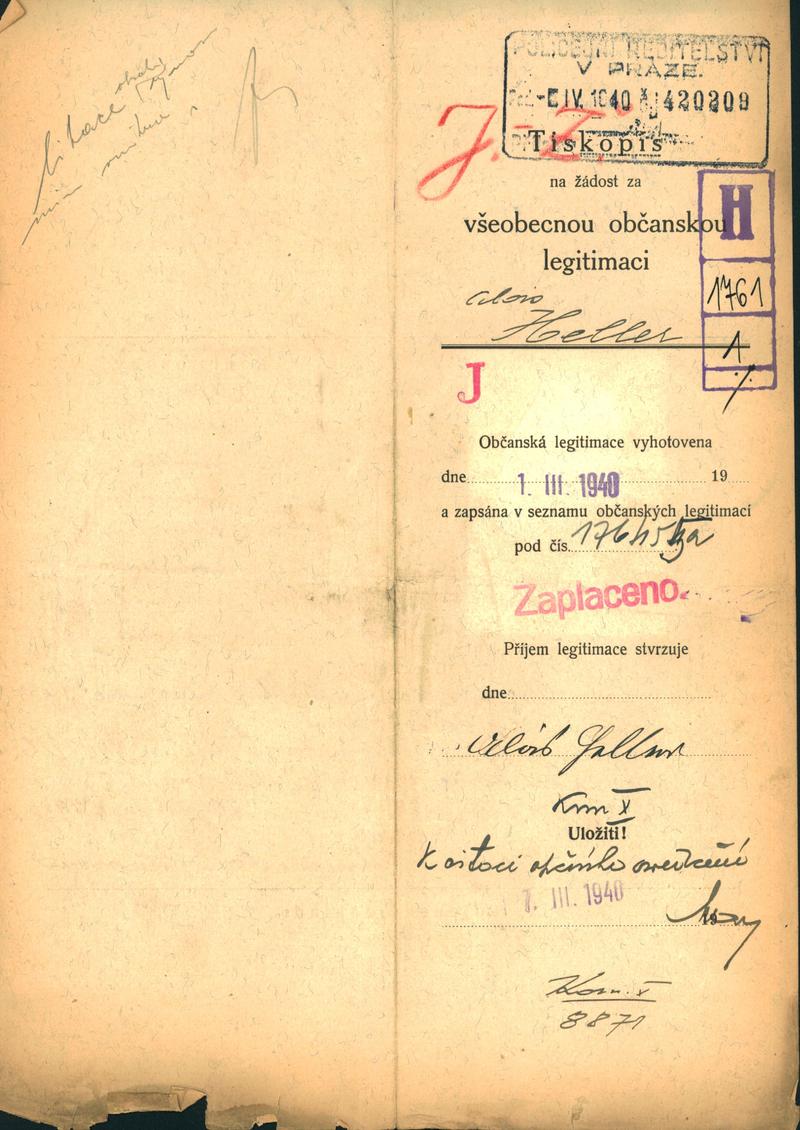 POLICEJNÍ ŘEDITELSTVÍ
V PRAZE.
IV. 1940 420809
J.-Z.
Tiskopis
na žádost za
všeobecnou občanskou
legitimaci
H
1761
1
Alois
Heller
J
Občanská legitimace vyhotovena
dne 1. III. 1940 19
a zapsána v seznamu občanských legitimací
pod čís.
Zaplaceno.
Příjem legitimace stvrzuje
dne
Alois Heller
Kom X
Uložiti!
K
III. 1940
Kom. X
8871